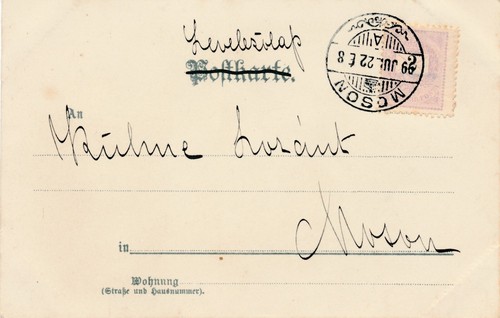 Levelezolap
Postkarte.
MOSON
99 JUL. 22 É. 8
A
An
Kühne Loránt
in Moson
Wohnung
(Straße und Hausnummer).